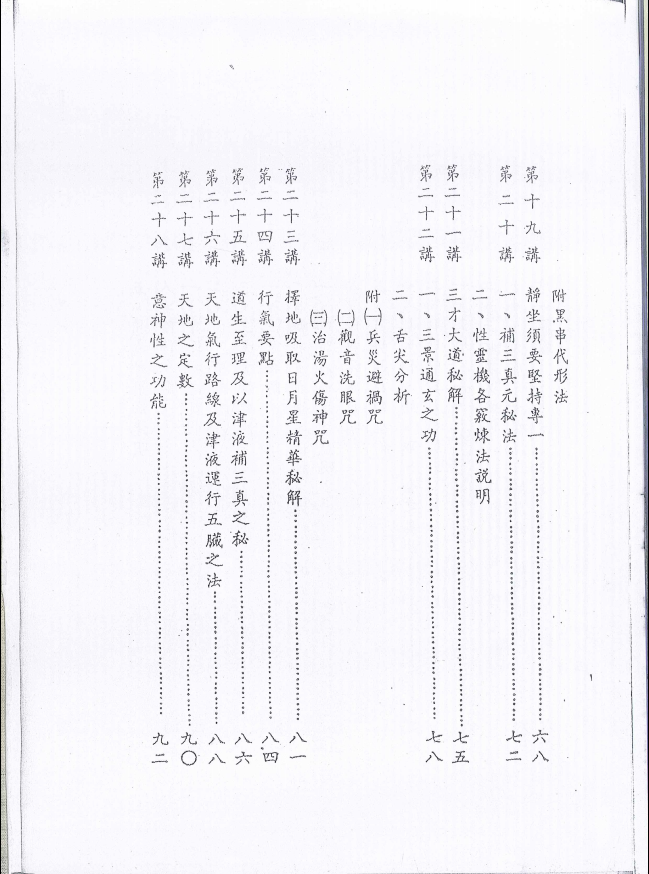 附黑串代形法
第十九講 靜坐須要堅持專一……六八
第二十講 一、補三真元秘法……七二
二、性靈機各竅煉法説明
第二十一講 三才大道秘解……七五
第二十二講 一、三景通玄之功……七八
二、舌尖分析
附㈠兵災避禍咒
㈡觀音洗眼咒
㈢治湯火傷神咒
第二十三講 擇地吸取日月星精華秘解……八一
第二十四講 行氣要點……八四
第二十五講 道生至理及以津液補三真之秘……八六
第二十六講 天地氣行路線及津液運行五臟之法……八八
第二十七講 天地之定數……九〇
第二十八講 意神性之功能……九二